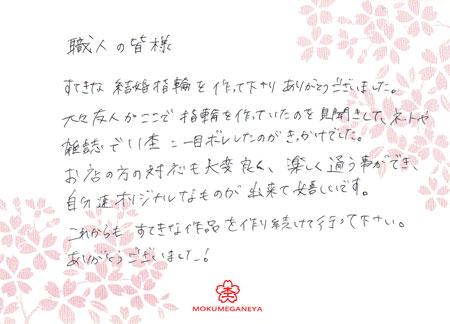 職人の皆様
すてきな結婚指輪を作って下さりありがとうございました。
元々友人がここで指輪を作っていたのを見聞きして、ネットや
雑誌で 一目ボレしたのがきっかけでした。
お店の方の対応も大変良く、楽しく通う事ができ、
自分達オリジナルなものが出来て嬉しいです。
これからもすてきな作品を作り続けて行って下さい。
ありがとうございました!
MOKUMEGANEYA